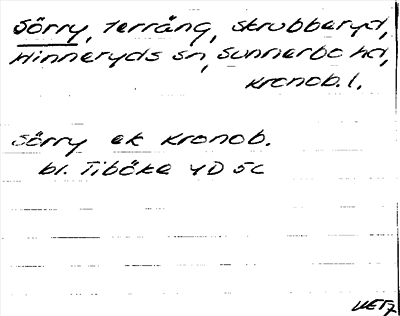 Sörry, terräng, Skrubberyd,
Hinneryds sn, Sunnerbo hd,
Kronob. l.
Sörry ek Kronob.
bl. Tiböke 4D 5c